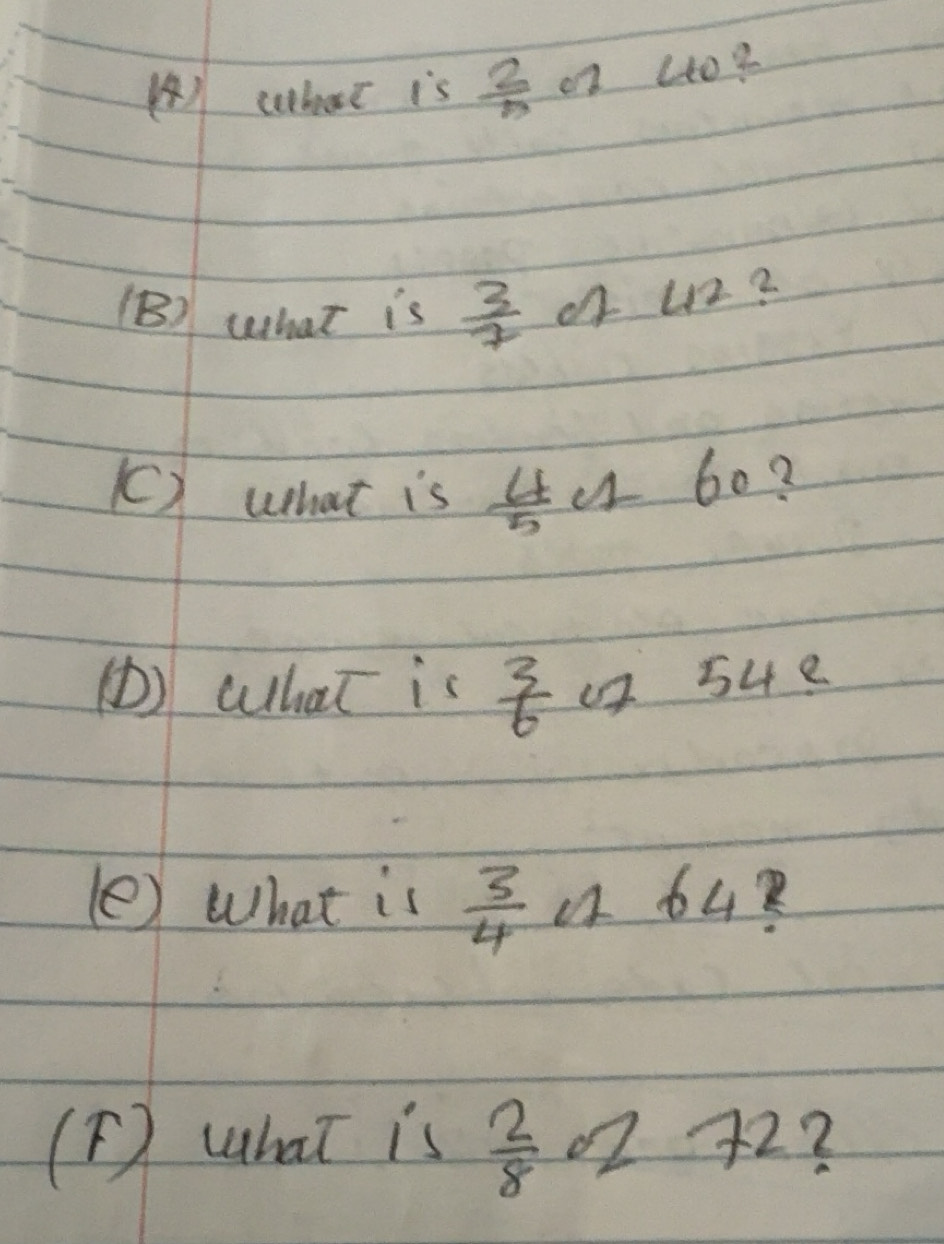 (A) What is 2/5 of 40?
(B) What is 3/7 of 42?
(C) What is 4/5 of 60?
(D) What is 3/6 of 54?
(e) What is 3/4 of 64?
(F) What is 2/8 of 72?